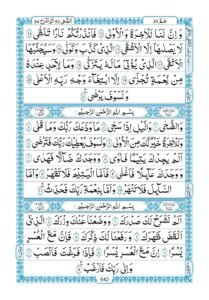 عمّ 30
الضحى 93 الم نشرح 94
وَ اِنَّ لَنَا لَلْاٰخِرَةَ وَ الْاُوْلٰى فَاَنْذَرْتُكُمْ نَارًا تَلَظّٰى
لَا يَصْلٰىهَاۤ اِلَّا الْاَشْقَى الَّذِیْ كَذَّبَ وَ تَوَلّٰى وَ سَیُجَنَّبُهَا
الْاَتْقَى الَّذِیْ یُؤْتِیْ مَالَهٗ یَتَزَكّٰى وَ مَا لِاَحَدٍ عِنْدَهٗ
مِنْ نِّعْمَةٍ تُجْزٰۤى اِلَّا ابْتِغَآءَ وَجْهِ رَبِّهِ الْاَعْلٰى
وَ لَسَوْفَ یَرْضٰى
بِسْمِ اللّٰهِ الرَّحْمٰنِ الرَّحِیْمِ
وَ الضُّحٰى وَ الَّیْلِ اِذَا سَجٰى مَا وَدَّعَكَ رَبُّكَ وَ مَا قَلٰى
وَ لَلْاٰخِرَةُ خَیْرٌ لَّكَ مِنَ الْاُوْلٰى وَ لَسَوْفَ یُعْطِیْكَ رَبُّكَ فَتَرْضٰى
اَلَمْ یَجِدْكَ یَتِیْمًا فَاٰوٰى وَ وَجَدَكَ ضَآلًّا فَهَدٰى
وَ وَجَدَكَ عَآئِلًا فَاَغْنٰى فَاَمَّا الْیَتِیْمَ فَلَا تَقْهَرْ وَ اَمَّا
السَّآئِلَ فَلَا تَنْهَرْ وَ اَمَّا بِنِعْمَةِ رَبِّكَ فَحَدِّثْ
بِسْمِ اللّٰهِ الرَّحْمٰنِ الرَّحِیْمِ
اَلَمْ نَشْرَحْ لَكَ صَدْرَكَ وَ وَضَعْنَا عَنْكَ وِزْرَكَ الَّذِیْۤ
اَنْقَضَ ظَهْرَكَ وَ رَفَعْنَا لَكَ ذِكْرَكَ فَاِنَّ مَعَ الْعُسْرِ
یُسْرًا اِنَّ مَعَ الْعُسْرِ یُسْرًا فَاِذَا فَرَغْتَ فَانْصَبْ
وَ اِلٰى رَبِّكَ فَارْغَبْ
542